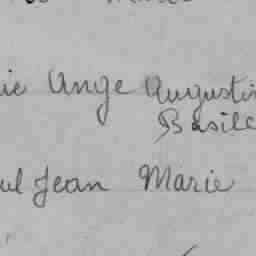 ie Ange Augustin
Basile
ul Jean Marie